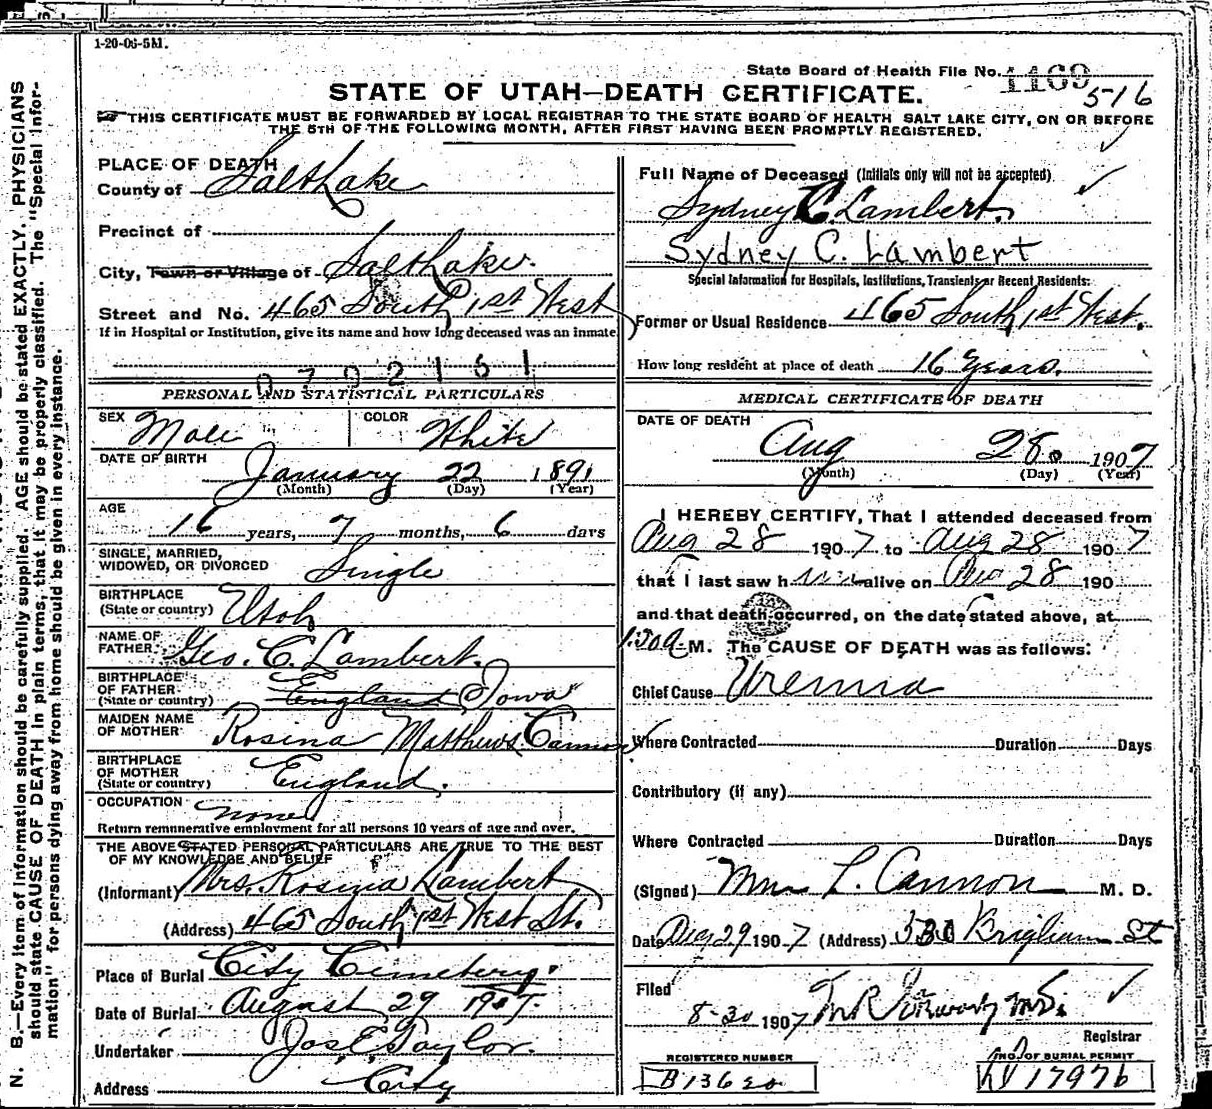 1-20-06-5M.
State Board of Health File No. 1169
516
STATE OF UTAH—DEATH CERTIFICATE.
THIS CERTIFICATE MUST BE FORWARDED BY LOCAL REGISTRAR TO THE STATE BOARD OF HEALTH SALT LAKE CITY, ON OR BEFORE
THE 5TH OF THE FOLLOWING MONTH, AFTER FIRST HAVING BEEN PROMPTLY REGISTERED.
N. B.—Every item of information should be carefully supplied. AGE should be stated EXACTLY. PHYSICIANS
should state CAUSE OF DEATH in plain terms, that it may be properly classified. The "Special Infor-
mation" for persons dying away from home should be given in every instance.
PLACE OF DEATH
County of Salt Lake
Precinct of
City, Town or Village of Salt Lake.
Street and No. 465 South 1st West
If in Hospital or Institution, give its name and how long deceased was an inmate
0702151
PERSONAL AND STATISTICAL PARTICULARS
SEX Male COLOR White
DATE OF BIRTH January 22 1891
(Month) (Day) (Year)
AGE 16 years, 7 months, 6 days
SINGLE, MARRIED,
WIDOWED, OR DIVORCED Single
BIRTHPLACE
(State or country) Utah
NAME OF
FATHER Geo. C. Lambert.
BIRTHPLACE
OF FATHER
(State or country) England Iowa
MAIDEN NAME
OF MOTHER Rosina Matthews Cannon
BIRTHPLACE
OF MOTHER
(State or country) England.
OCCUPATION none
Return remunerative employment for all persons 10 years of age and over.
THE ABOVE STATED PERSONAL PARTICULARS ARE TRUE TO THE BEST
OF MY KNOWLEDGE AND BELIEF
(Informant) Mrs. Rosina Lambert
(Address) 465 South 1st West St.
Place of Burial City Cemetery.
Date of Burial August 29 1907.
Undertaker Jos. E. Taylor.
Address City
Full Name of Deceased (Initials only will not be accepted)
Sydney C. Lambert.
Sydney C. Lambert
Special Information for Hospitals, Institutions, Transients or Recent Residents:
Former or Usual Residence 465 South 1st West.
How long resident at place of death 16 Years.
MEDICAL CERTIFICATE OF DEATH
DATE OF DEATH
Aug 28. 1907
(Month) (Day) (Year)
I HEREBY CERTIFY, That I attended deceased from
Aug 28 1907 to Aug 28 1907
that I last saw him alive on Aug 28 190
and that death occurred, on the date stated above, at
1:30 a M. The CAUSE OF DEATH was as follows:
Chief Cause Uremia
Where Contracted Duration Days
Contributory (if any)
Where Contracted Duration Days
(Signed) L. Cannon M. D.
Date Aug 29 1907 (Address) Brigham St
Filed
8-30 1907 M.D.
Registrar
REGISTERED NUMBER
B136
NO. OF BURIAL PERMIT
17976